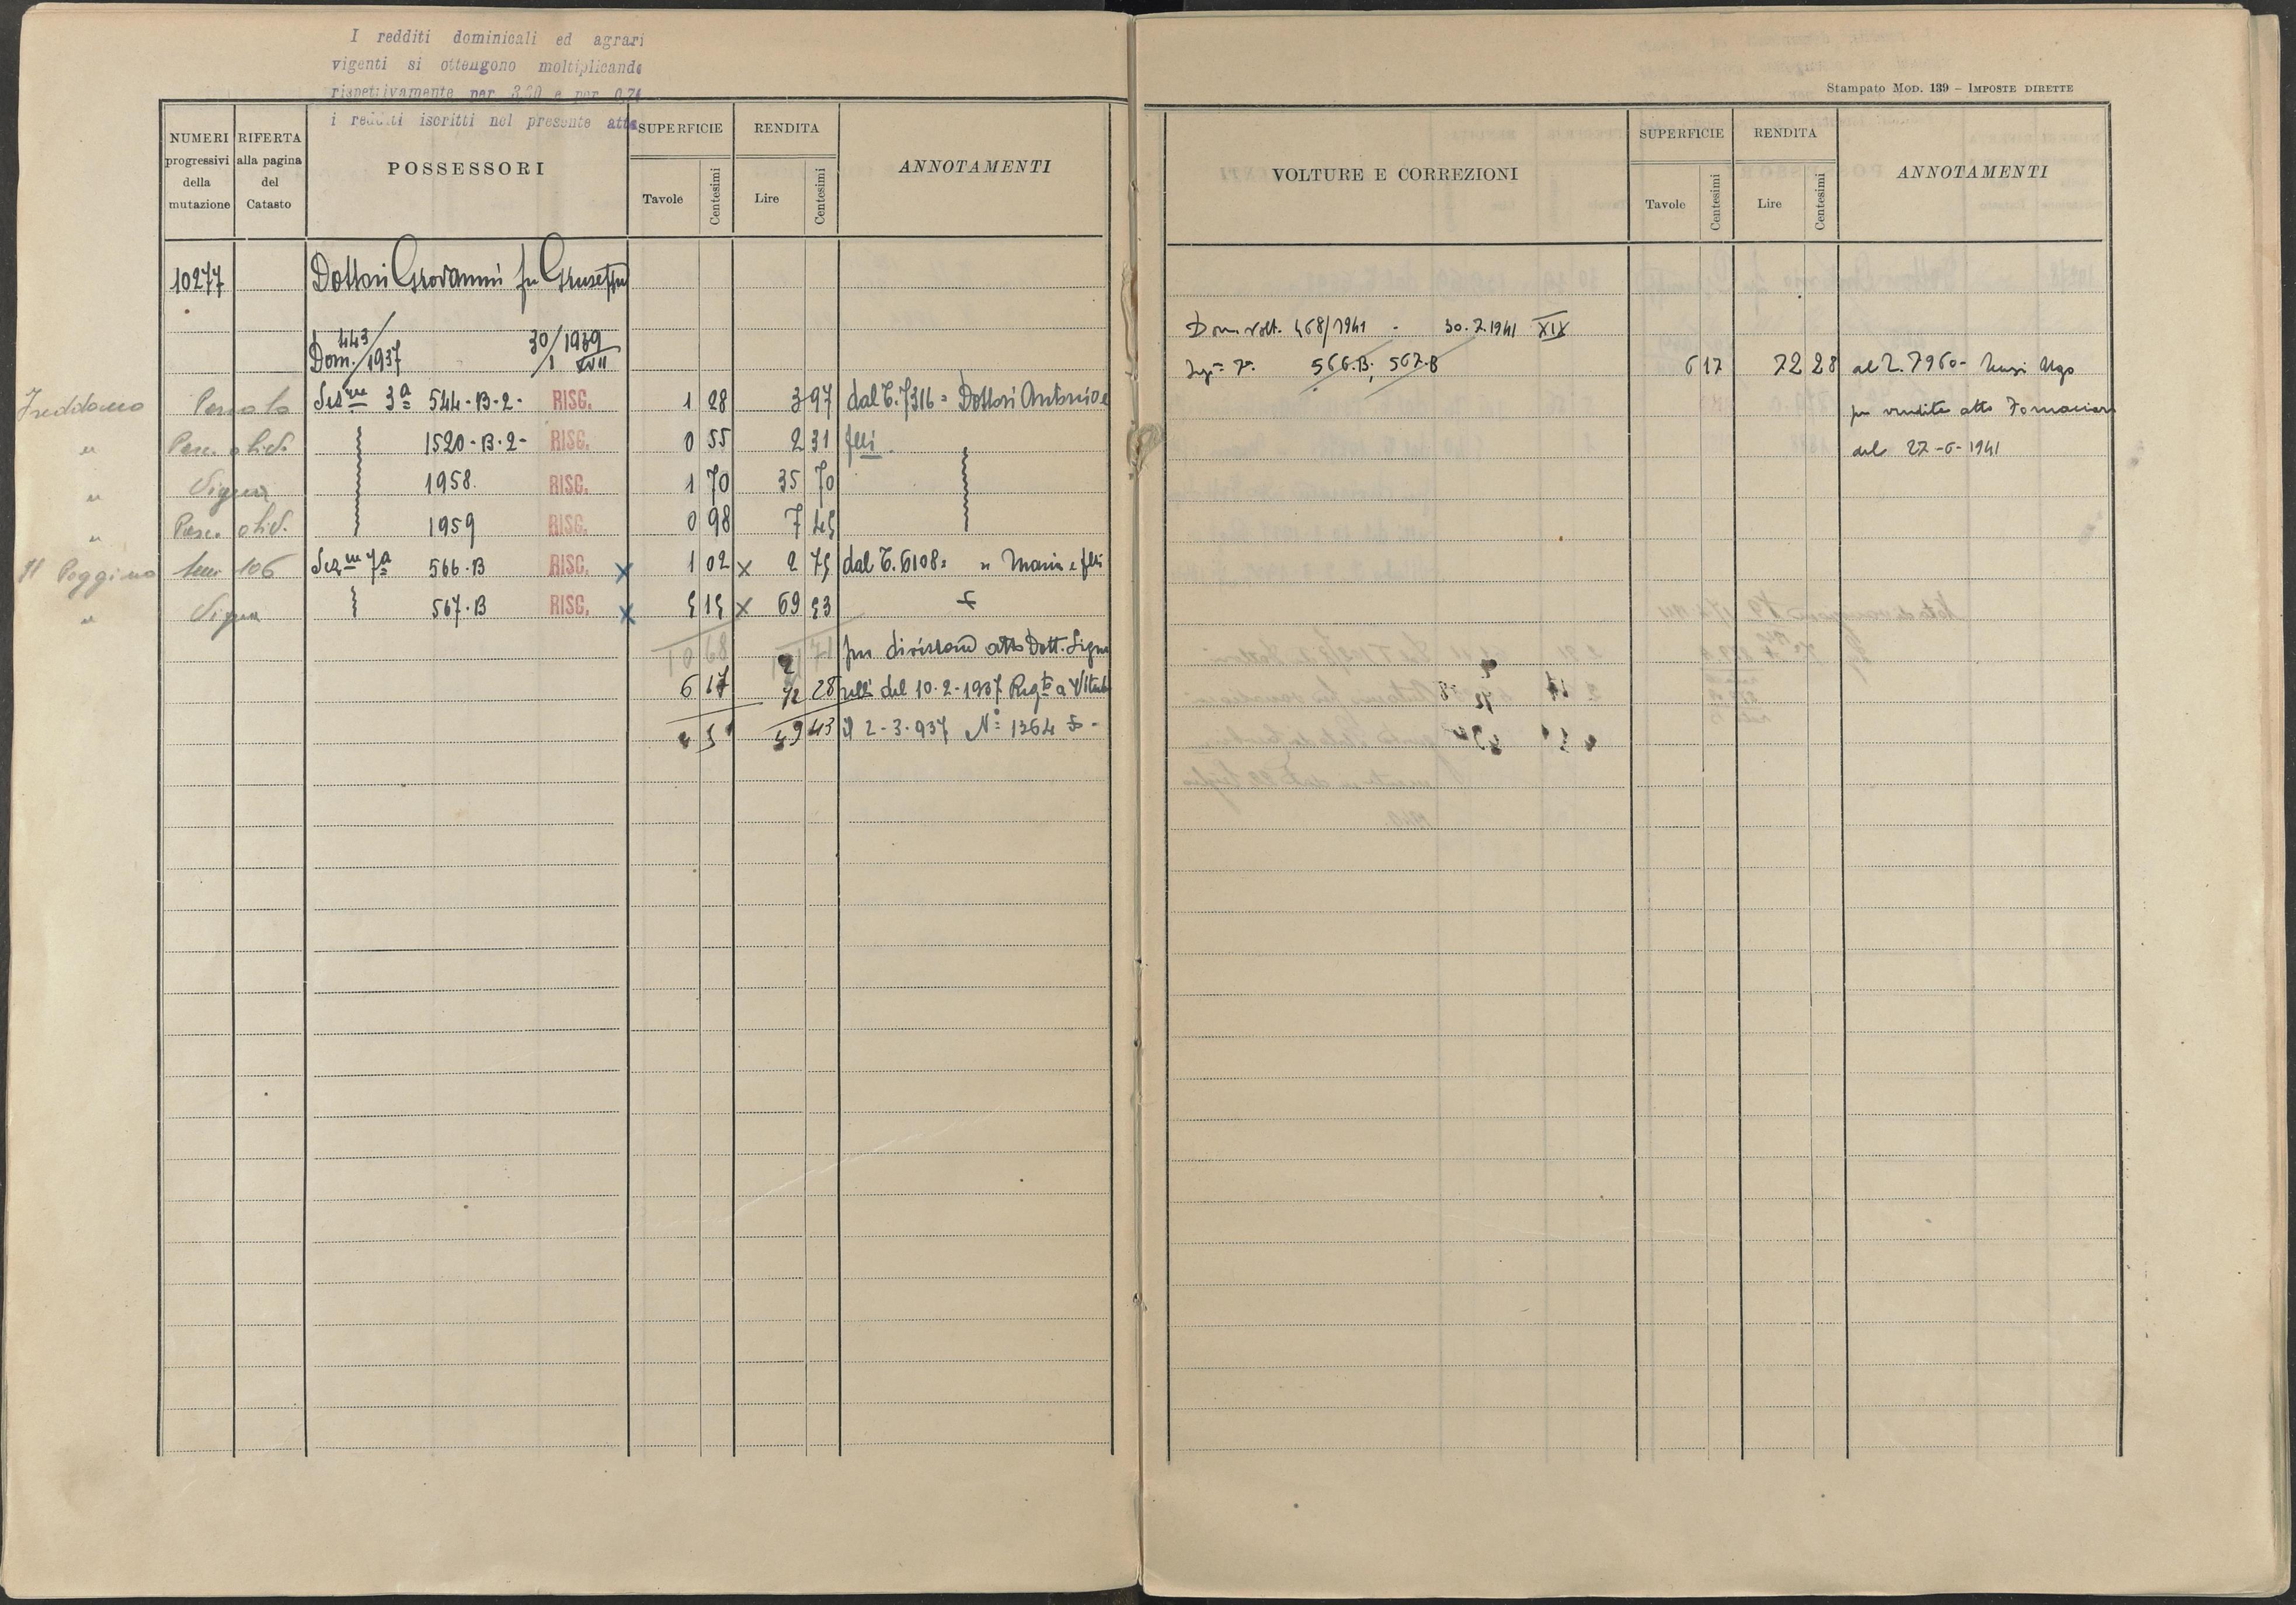 I redditi dominicali ed agrari
vigenti si ottengono moltiplicando
rispettivamente per 3,20 e per 0,74
i redditi iscritti nel presente atto
NUMERI progressivi della mutazione
RIFERTA alla pagina del Catasto
POSSESSORI
SUPERFICIE
Tavole Centesimi
RENDITA
Lire Centesimi
ANNOTAMENTI
10277 Dottori Giovanni fu Giuseppe
Dom. 443/1937 30/1 1939 XVII
Sez.ne 3ª 544-B-2- RISC. 1 28 3 97 dal T. 7316 = Dottori Antonio e
" Pasc. olid. 1520-B-2- RISC. 0 55 2 31 flli.
" Vigna 1958 RISC. 1 70 35 70
" Pasc. olid. 1959 RISC. 0 98 7 45
Il Poggino Sem 106 Sez.ne 7ª 566-B RISC. x 1 02 x 2 75 dal T. 6108 = " Maria e flli
" Vigna 567-B RISC. x 5 15 x 69 53
10 68 121 71 per divisione atto Dott.
6 17 72 28 del 10-2-1937 Reg.to a
4 51 49 43 il 2-3-937 Nº 1364
Stampato MOD. 139 – IMPOSTE DIRETTE
VOLTURE E CORREZIONI
SUPERFICIE
Tavole Centesimi
RENDITA
Lire Centesimi
ANNOTAMENTI
Dom. volt. 468/1941 - 30.7.1941 XIX
566.B, 567.B 6 17 72 28 al T. 7960 - Ugo
per vendita atto Fornaciari
del 27-6-1941